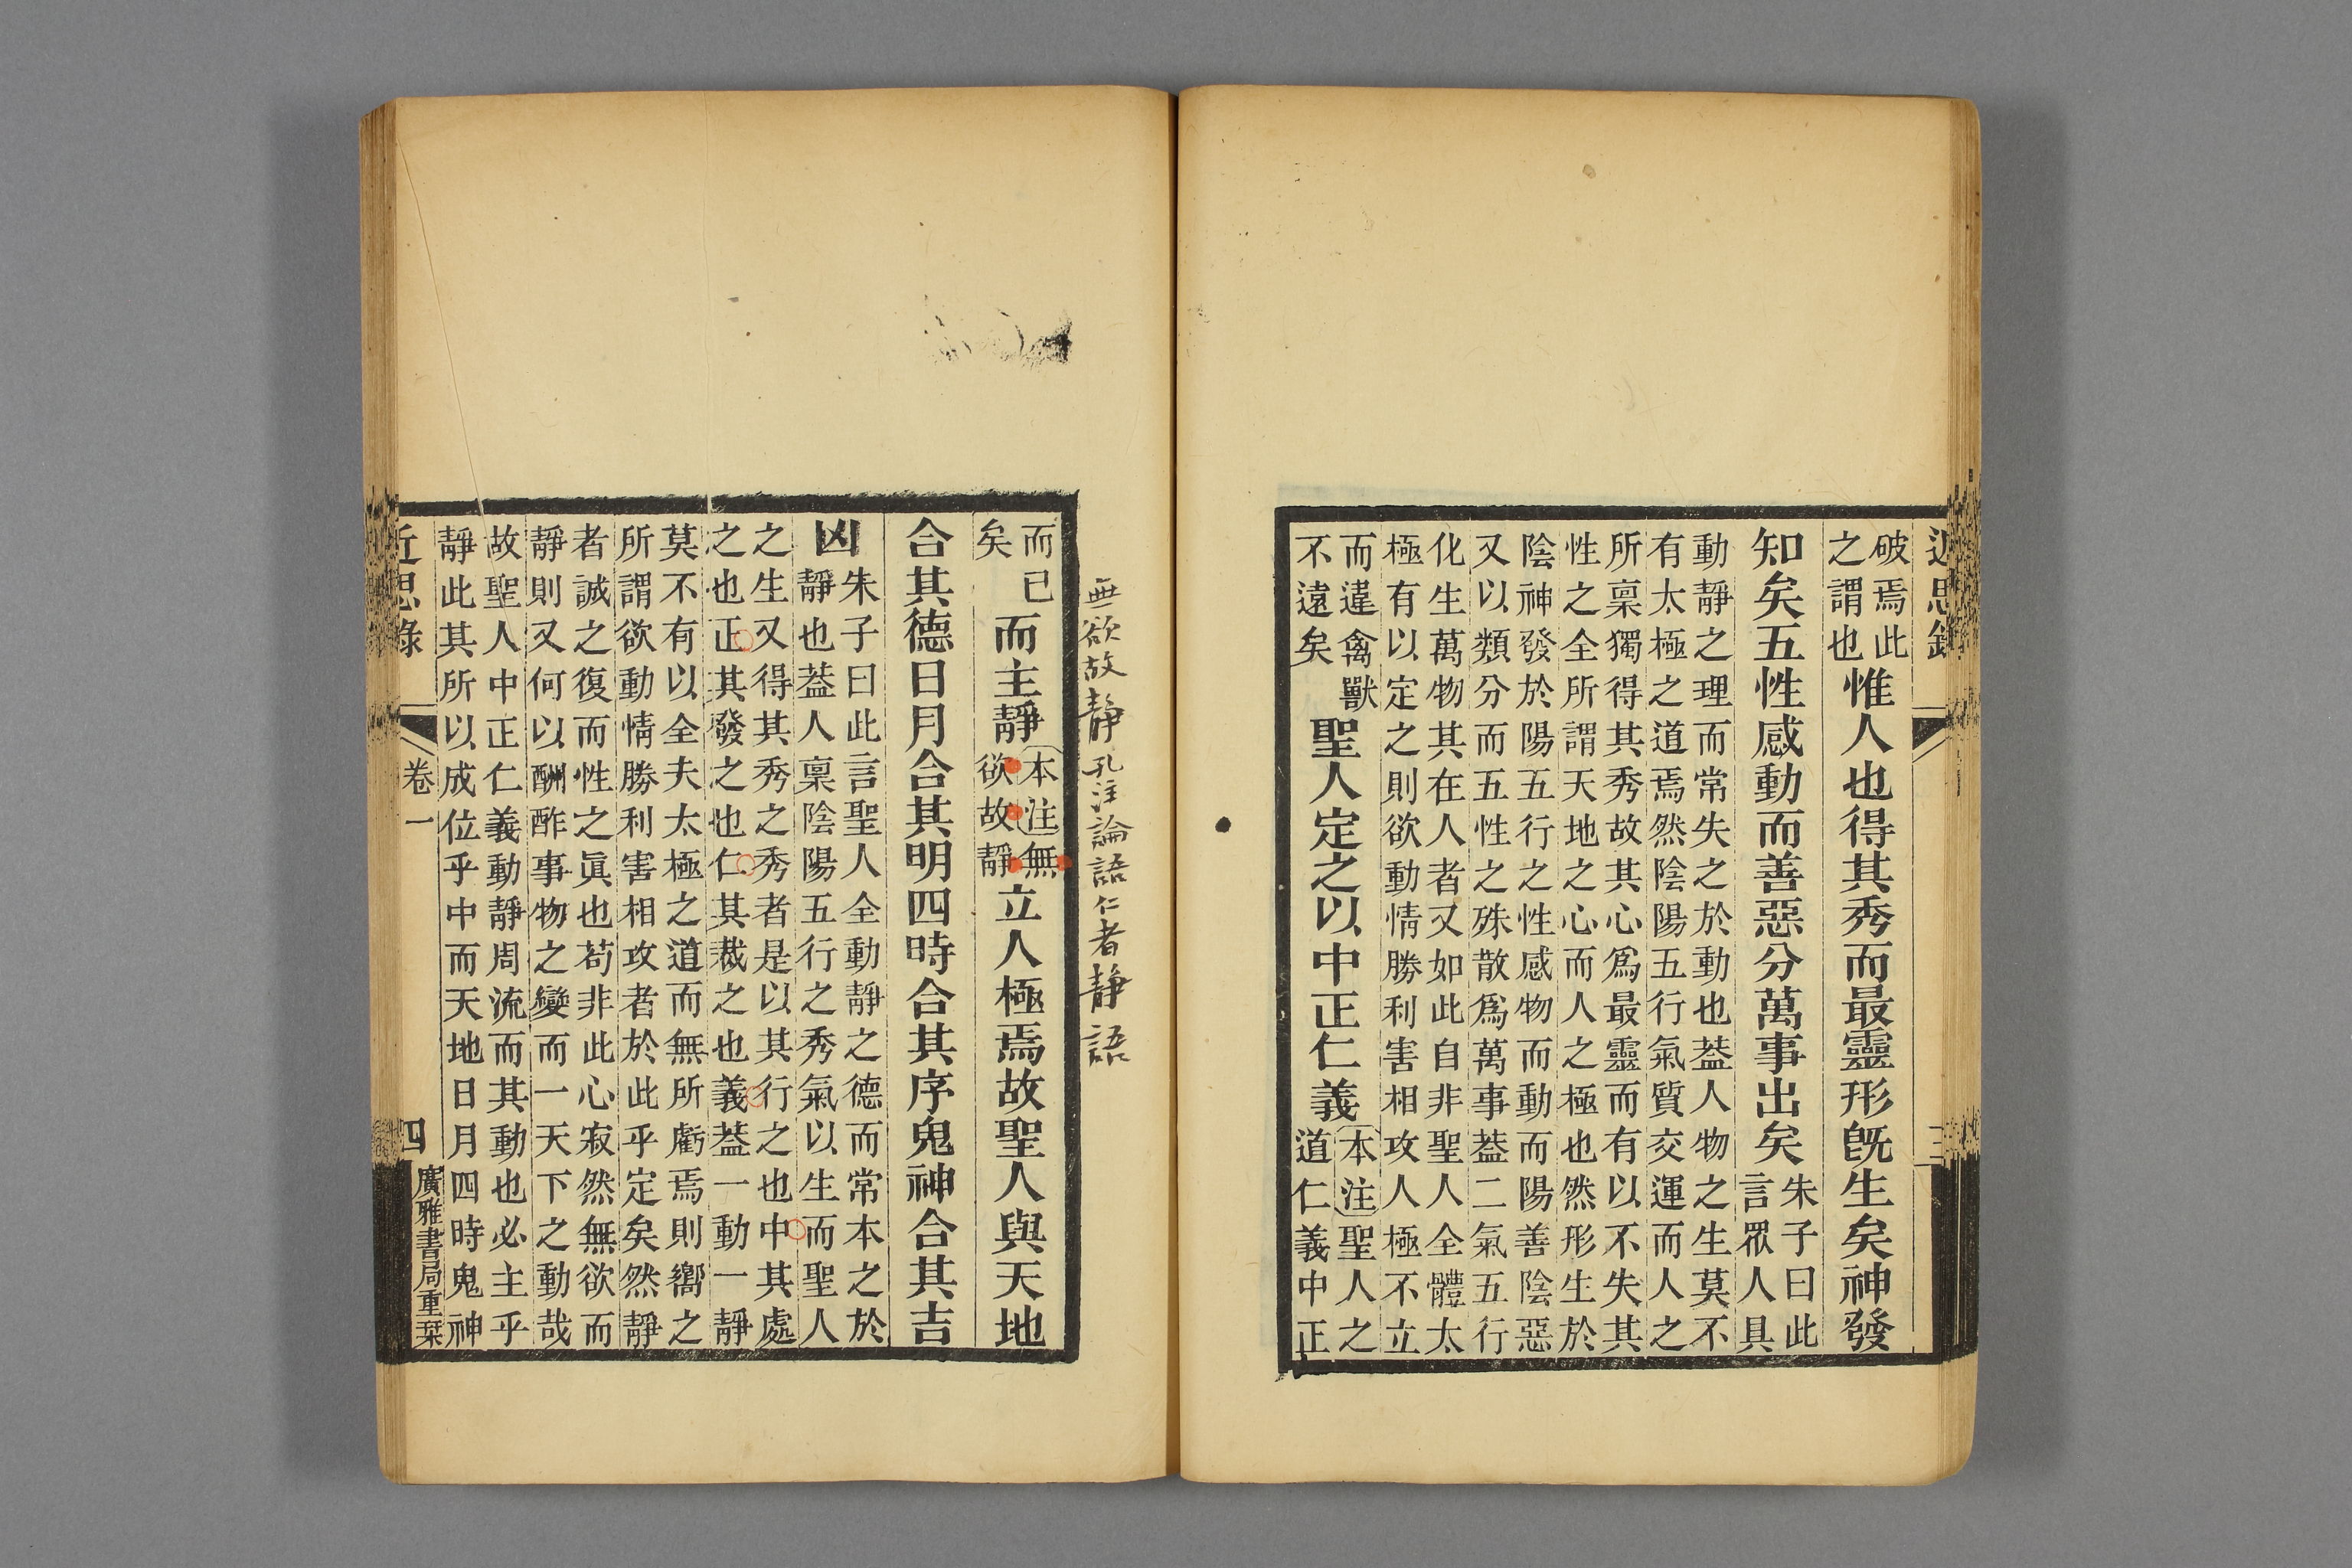 近思錄
三
破焉此之謂也惟人也得其秀而最靈形旣生矣神發
知矣五性感動而善惡分萬事出矣朱子曰此言眾人具
動靜之理而常失之於動也葢人物之生莫不
有太極之道焉然陰陽五行氣質交運而人之
所稟獨得其秀故其心爲最靈而有以不失其
性之全所謂天地之心而人之極也然形生於
陰神發於陽五行之性感物而動而陽善陰惡
又以類分而五性之殊散爲萬事葢二氣五行
化生萬物其在人者又如此自非聖人全體太
極有以定之則欲動情勝利害相攻人極不立
而違禽獸不遠矣聖人定之以中正仁義本注聖人之道仁義中正
無欲故靜孔注論語仁者靜語
而已矣而主靜本注無欲故靜立人極焉故聖人與天地
合其德日月合其明四時合其序鬼神合其吉
凶朱子曰此言聖人全動靜之德而常本之於
靜也葢人稟陰陽五行之秀氣以生而聖人
之生又得其秀之秀者是以其行之也中其處
之也正其發之也仁其裁之也義葢一動一靜
莫不有以全夫太極之道而無所虧焉則嚮之
所謂欲動情勝利害相攻者於此乎定矣然靜
者誠之復而性之眞也苟非此心寂然無欲而
靜則又何以酬酢事物之變而一天下之動哉
故聖人中正仁義動靜周流而其動也必主乎
靜此其所以成位乎中而天地日月四時鬼神
近思錄
卷一
四
廣雅書局重栞